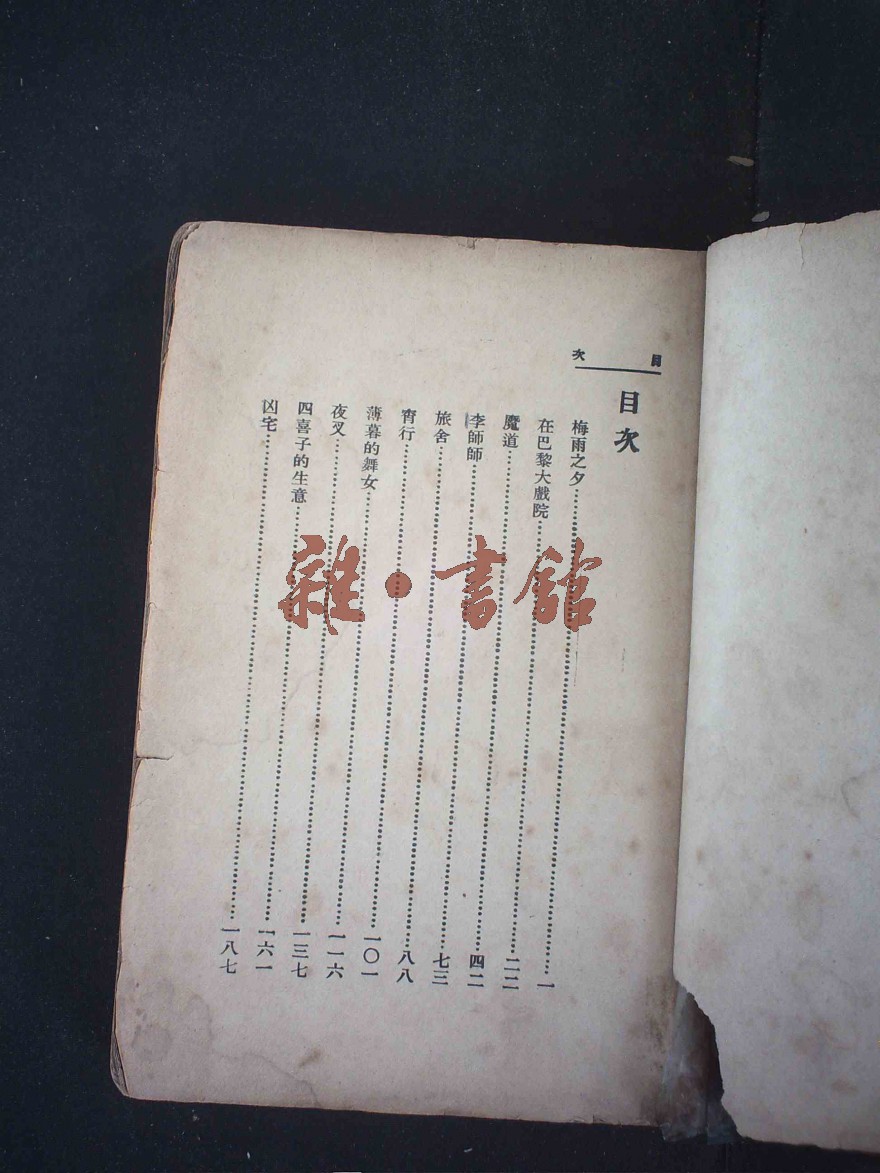 目次
目次
梅雨之夕……一
在巴黎大戲院……二二
魔道……四二
李師師……七三
旅舍……八八
宵行……一〇一
薄暮的舞女……一一六
夜叉……一三七
四喜子的生意……一六一
凶宅……一八七
雜·書館